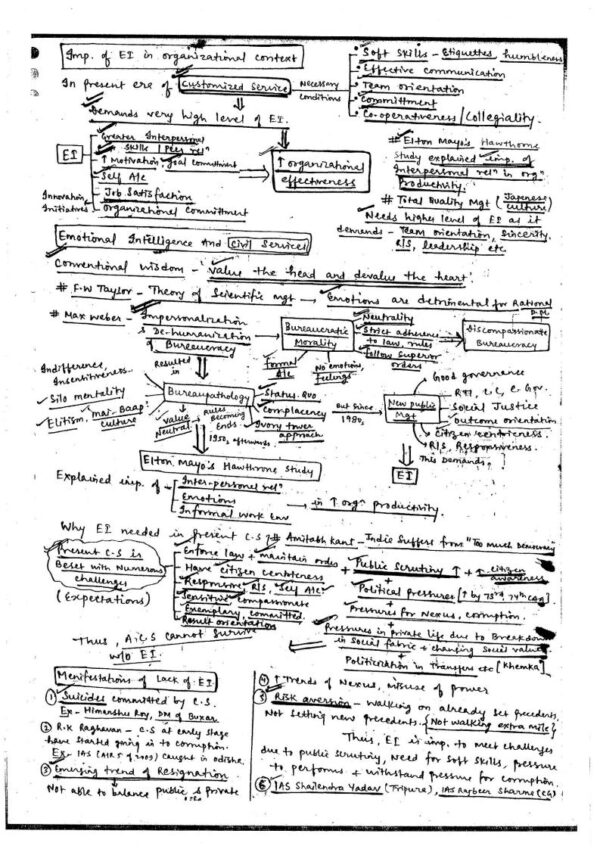 Imp. of EI in organizational context
In present era of Customized Service
Necessary conditions
Soft Skills - Etiquettes, humbleness
Effective communication
Team orientation
Committment
Co-operativeness/Collegiality.
Demands very high level of EI.
EI
Greater Interpersonal
Skills / Peer relⁿ
↑ Motivation, Goal commitment
Self A/c
Job Satisfaction
Organizational Committment
Innovation
Initiatives
↑ organizational
effectiveness
# Elton Mayo's Hawthorne
Study explained imp. of
Interpersonal relⁿ in orgⁿ
Productivity.
# Total Quality Mgt (Japenese
culture)
Needs higher level of EI as it
demands - Team orientation, Sincerity,
R/S, leadership etc.
Emotional Intelligence And Civil Services
Conventional wisdom - 'value the head and devalue the heart'
# F.W Taylor - Theory of Scientific mgt → Emotions are detrimental for Rational
D.M
# Max Weber - Impersonalization
& De-humanization
of Bureaucracy
Bureaucratic
Morality
Neutrality
Strict adherence
to law, rules
follow superior
orders
Discompassionate
Bureaucracy
Formal
A/c
No emotions,
feelings
Resulted
in
Indifference,
Insentitiveness
Silo mentality
Elitism, mai-Baap
culture
Bureaupathology
Value
Neutral
Rules
Becoming
Ends
Status-Quo
Complacency
Ivory tower
approach
But since
1980,
New public
Mgt
Good governance
RTI, C.C, E. Gov.
Social Justice
Outcome orientation
Citizen centricness.
R/S, Responsiveness.
This Demands,
EI
1950, afterwards
Elton Mayo's Hawthrone Study
Explained imp. of
Inter-personal relⁿ
Emotions
Informal work Env
→ in ↑ orgⁿ productivity.
Why EI needed in present C.S ?
# Amitabh Kant - India Suffers from "Too much Democracy"
Present C.S is
Beset with Numerous
challenges
(Expectations)
Enforce law + maintain order
Have citizen centricness
Responsive, R/S, Self A/c
Sensitive, compassionate
Exemplary, committed
Result orientation
+ Public Scrutiny ↑ + ↑ citizen
awareness
+
Political pressures [↑ by 73rd, 74th CAA]
+
Pressures for Nexus, corruption.
+
Pressures in private life due to Breakdown
in Social fabric + changing Social values
+
Politicization in Transfers etc [Khemka]
Thus, A.C.S cannot Survive
w/o EI.
Menifestations of Lack of EI
① Suicides committed by C.S.
Ex - Himanshu Roy, DM of Buxar
② R.K Raghavan - C.S at early stage
have started going in to corruption.
Ex. IAS (AIR 5 of 2009) Caught in odisha
③ Emerging trend of Resignation
Not able to balance public & private
life
④ ↑ Trends of Nexus, misuse of power
⑤ Risk aversion - walking on already set precedents,
Not Setting new precedents. {Not walking extra mile}
Thus, EI is imp. to meet challenges
due to public scrutiny, need for Soft Skills, pressure
to perform & + withstand pressure for corruption.
⑥ IAS Shailendra Yadav (Tripura), IAS Ranbeer Sharma (CG)